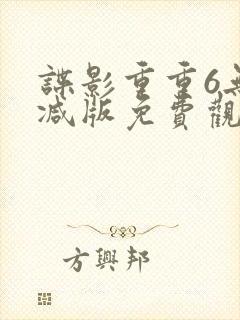 諜影重重6無
減版免費觀
方興邦